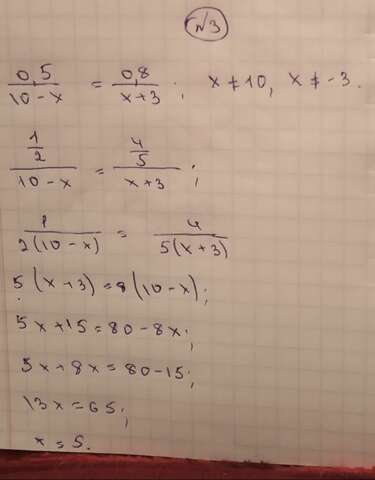 №3
0,5/(10-x) = 0,8/(x+3); x≠10, x≠-3.
(1/2)/(10-x) = (4/5)/(x+3);
1/(2(10-x)) = 4/(5(x+3))
5(x+3)=8(10-x);
5x+15=80-8x;
5x+8x=80-15;
13x=65;
x=5.